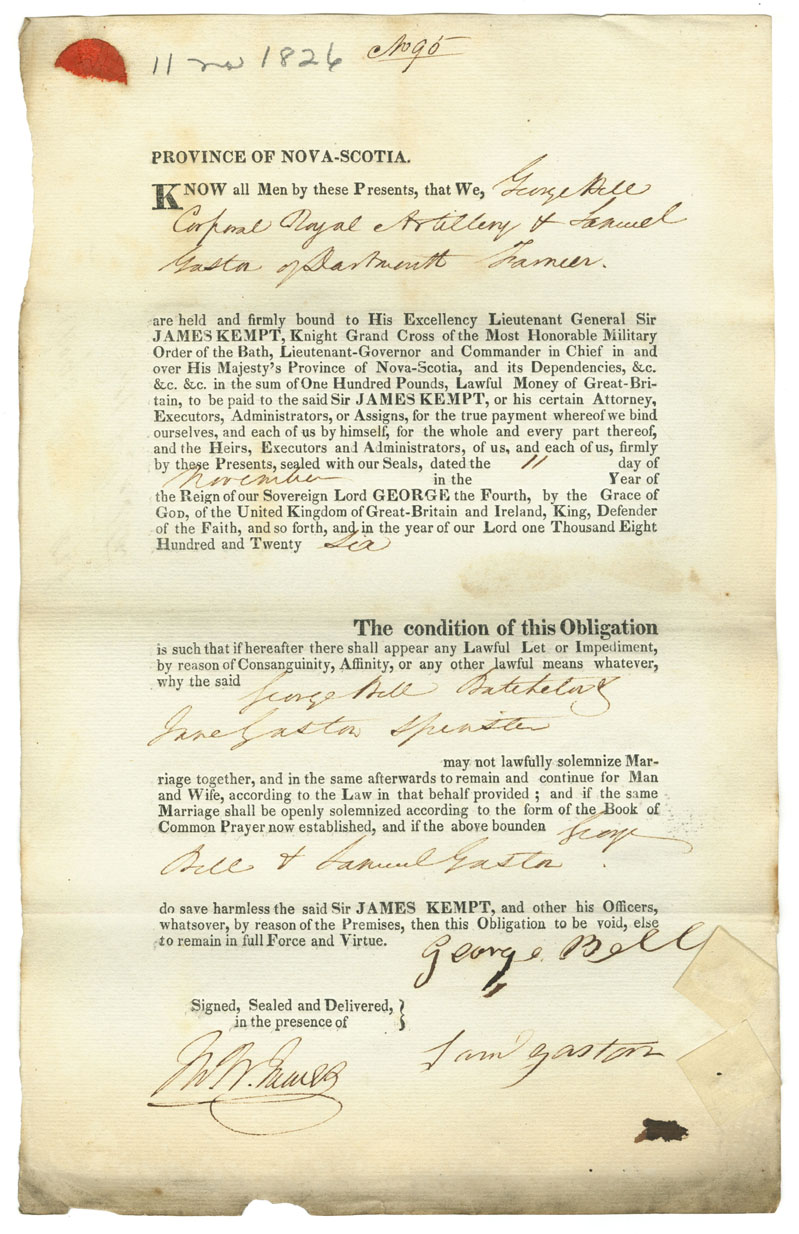 11 Nov 1826 No 95
PROVINCE OF NOVA-SCOTIA.
KNOW all Men by these Presents, that We, George Bell
Corporal Royal Artillery & Samuel
Gaston of Dartmouth Farmer.
are held and firmly bound to His Excellency Lieutenant General Sir
JAMES KEMPT, Knight Grand Cross of the Most Honorable Military
Order of the Bath, Lieutenant-Governor and Commander in Chief in and
over His Majesty's Province of Nova-Scotia, and its Dependencies, &c.
&c. &c. in the sum of One Hundred Pounds, Lawful Money of Great-Bri-
tain, to be paid to the said Sir JAMES KEMPT, or his certain Attorney,
Executors, Administrators, or Assigns, for the true payment whereof we bind
ourselves, and each of us by himself, for the whole and every part thereof,
and the Heirs, Executors and Administrators, of us, and each of us, firmly
by these Presents, sealed with our Seals, dated the 11 day of
November in the Year of
the Reign of our Sovereign Lord GEORGE the Fourth, by the Grace of
GOD, of the United Kingdom of Great-Britain and Ireland, King, Defender
of the Faith, and so forth, and in the year of our Lord one Thousand Eight
Hundred and Twenty Six
The condition of this Obligation
is such that if hereafter there shall appear any Lawful Let or Impediment,
by reason of Consanguinity, Affinity, or any other lawful means whatever,
why the said George Bell Batchelor &
Jane Gaston Spinster
may not lawfully solemnize Mar-
riage together, and in the same afterwards to remain and continue for Man
and Wife, according to the Law in that behalf provided ; and if the same
Marriage shall be openly solemnized according to the form of the Book of
Common Prayer now established, and if the above bounden George
Bell & Samuel Gaston .
do save harmless the said Sir JAMES KEMPT, and other his Officers,
whatsover, by reason of the Premises, then this Obligation to be void, else
to remain in full Force and Virtue.
George Bell
Signed, Sealed and Delivered, }
in the presence of
Saml Gaston